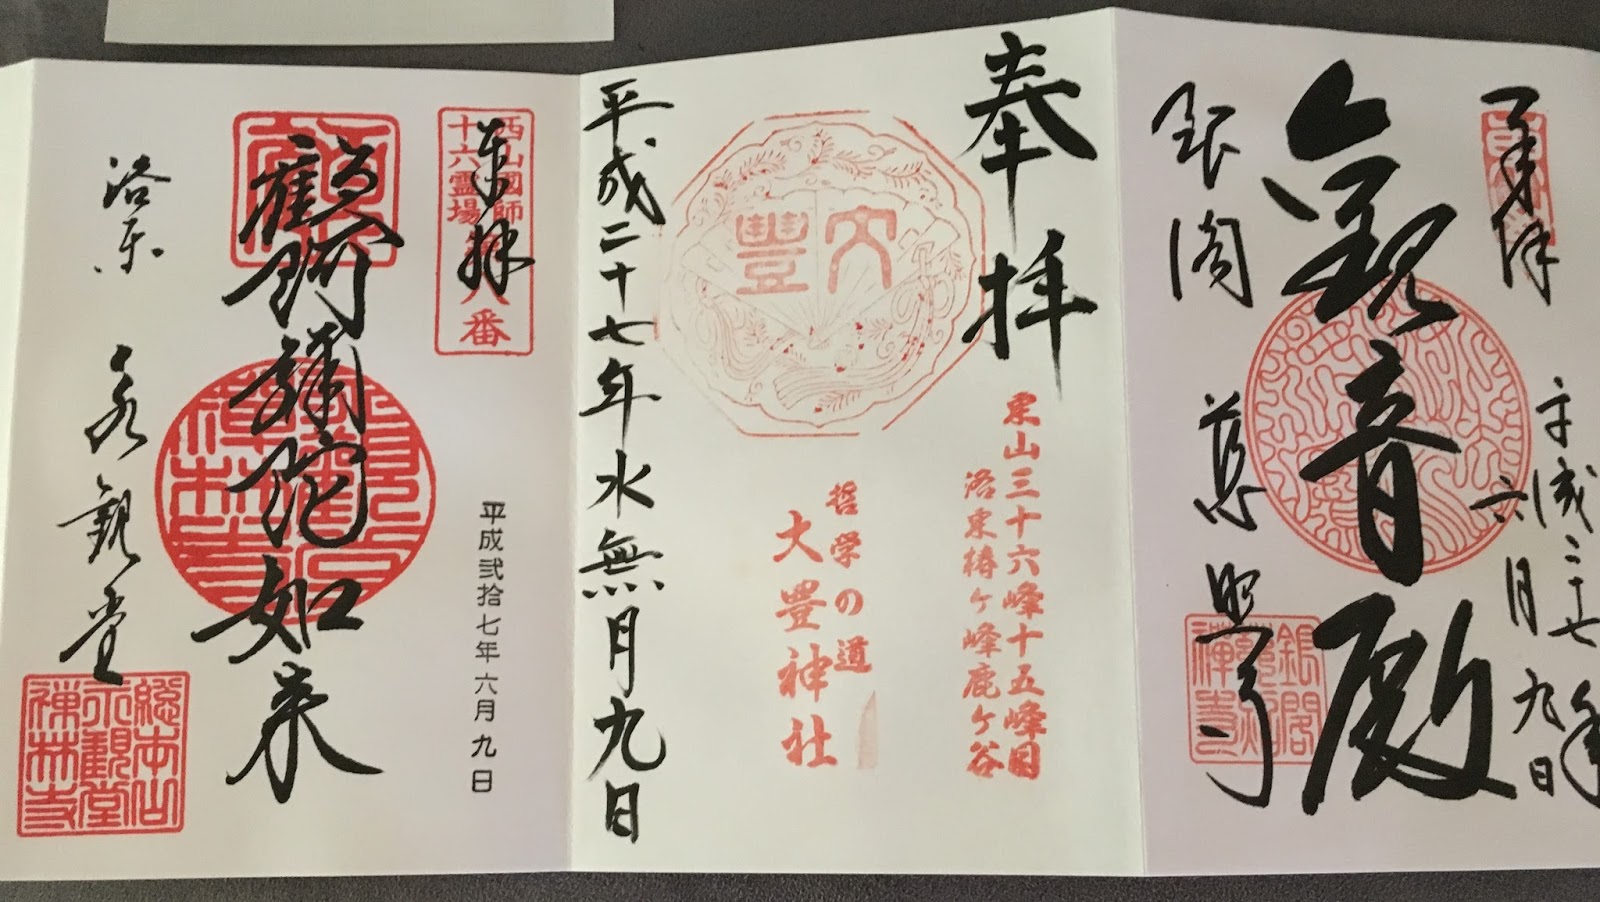 奉拝
平成二十七年
六月九日
觀音殿
銀閣
慈照寺
銀閣
禅寺
奉拝
東山三十六峰十五峰目
洛東椿ヶ峰鹿ヶ谷
大豊
哲学の道
大豊神社
平成二十七年水無月九日
西山國師
十六霊場
八番
奉拝
平成弐拾七年六月九日
顧阿弥陀如来
禅林寺
洛東
永観堂
総本山
永観堂
禅林寺